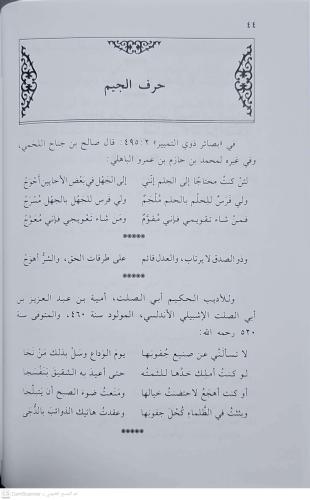 ٤٤
حرف الجيم
في «بصائر ذوي التمييز» ٤٩٥:٢: قال صالح بن جناح اللخمي،
وفي غيره لمحمد بن حازم بن عمرو الباهلي:
لئن كنتُ محتاجًا إلى الحلم إنّني إلى الجَهْل في بعض الأحايين أحْوجُ
ولي فرسٌ للحلْم بالحلم مُلْجَمٌ ولي فرس للجَهْل بالجَهْل مُسْرَجُ
فمنْ شاء تقويمي فإني مُقوَّمٌ ومَن شاء تعويجي فإني مُعوَّجُ
*****
وذو الصدق لا يرتاب، والعدل قائم على طرقات الحق، والشرُّ أهْوَجُ
*****
وللأديب الحكيم أبي الصلت، أمية بن عبد العزيز بن
أبي الصلت الإشبيلي الأندلسي، المولود سنة ٤٦٠، والمتوفى سنة
٥٢٠ رحمه الله:
لا تسألنَّي عن صنيع جُفونها يومَ الوَداع وسَلْ بذلك مَنْ نَجا
لو كنتُ أملك خدَّها للثمتُه حتى أعيدَ به الشقيقَ بَنفسَجا
أو كنت أهجَعُ لاحتضنتُ خيالها ومنَعتُ ضوءَ الصبح أن يتبلَّجا
وبثثتُ في الظَّلماء كُحْلَ جفونها وعقدتُ هاتيك الذوائبَ بالدُّجَى
*****
CamScanner